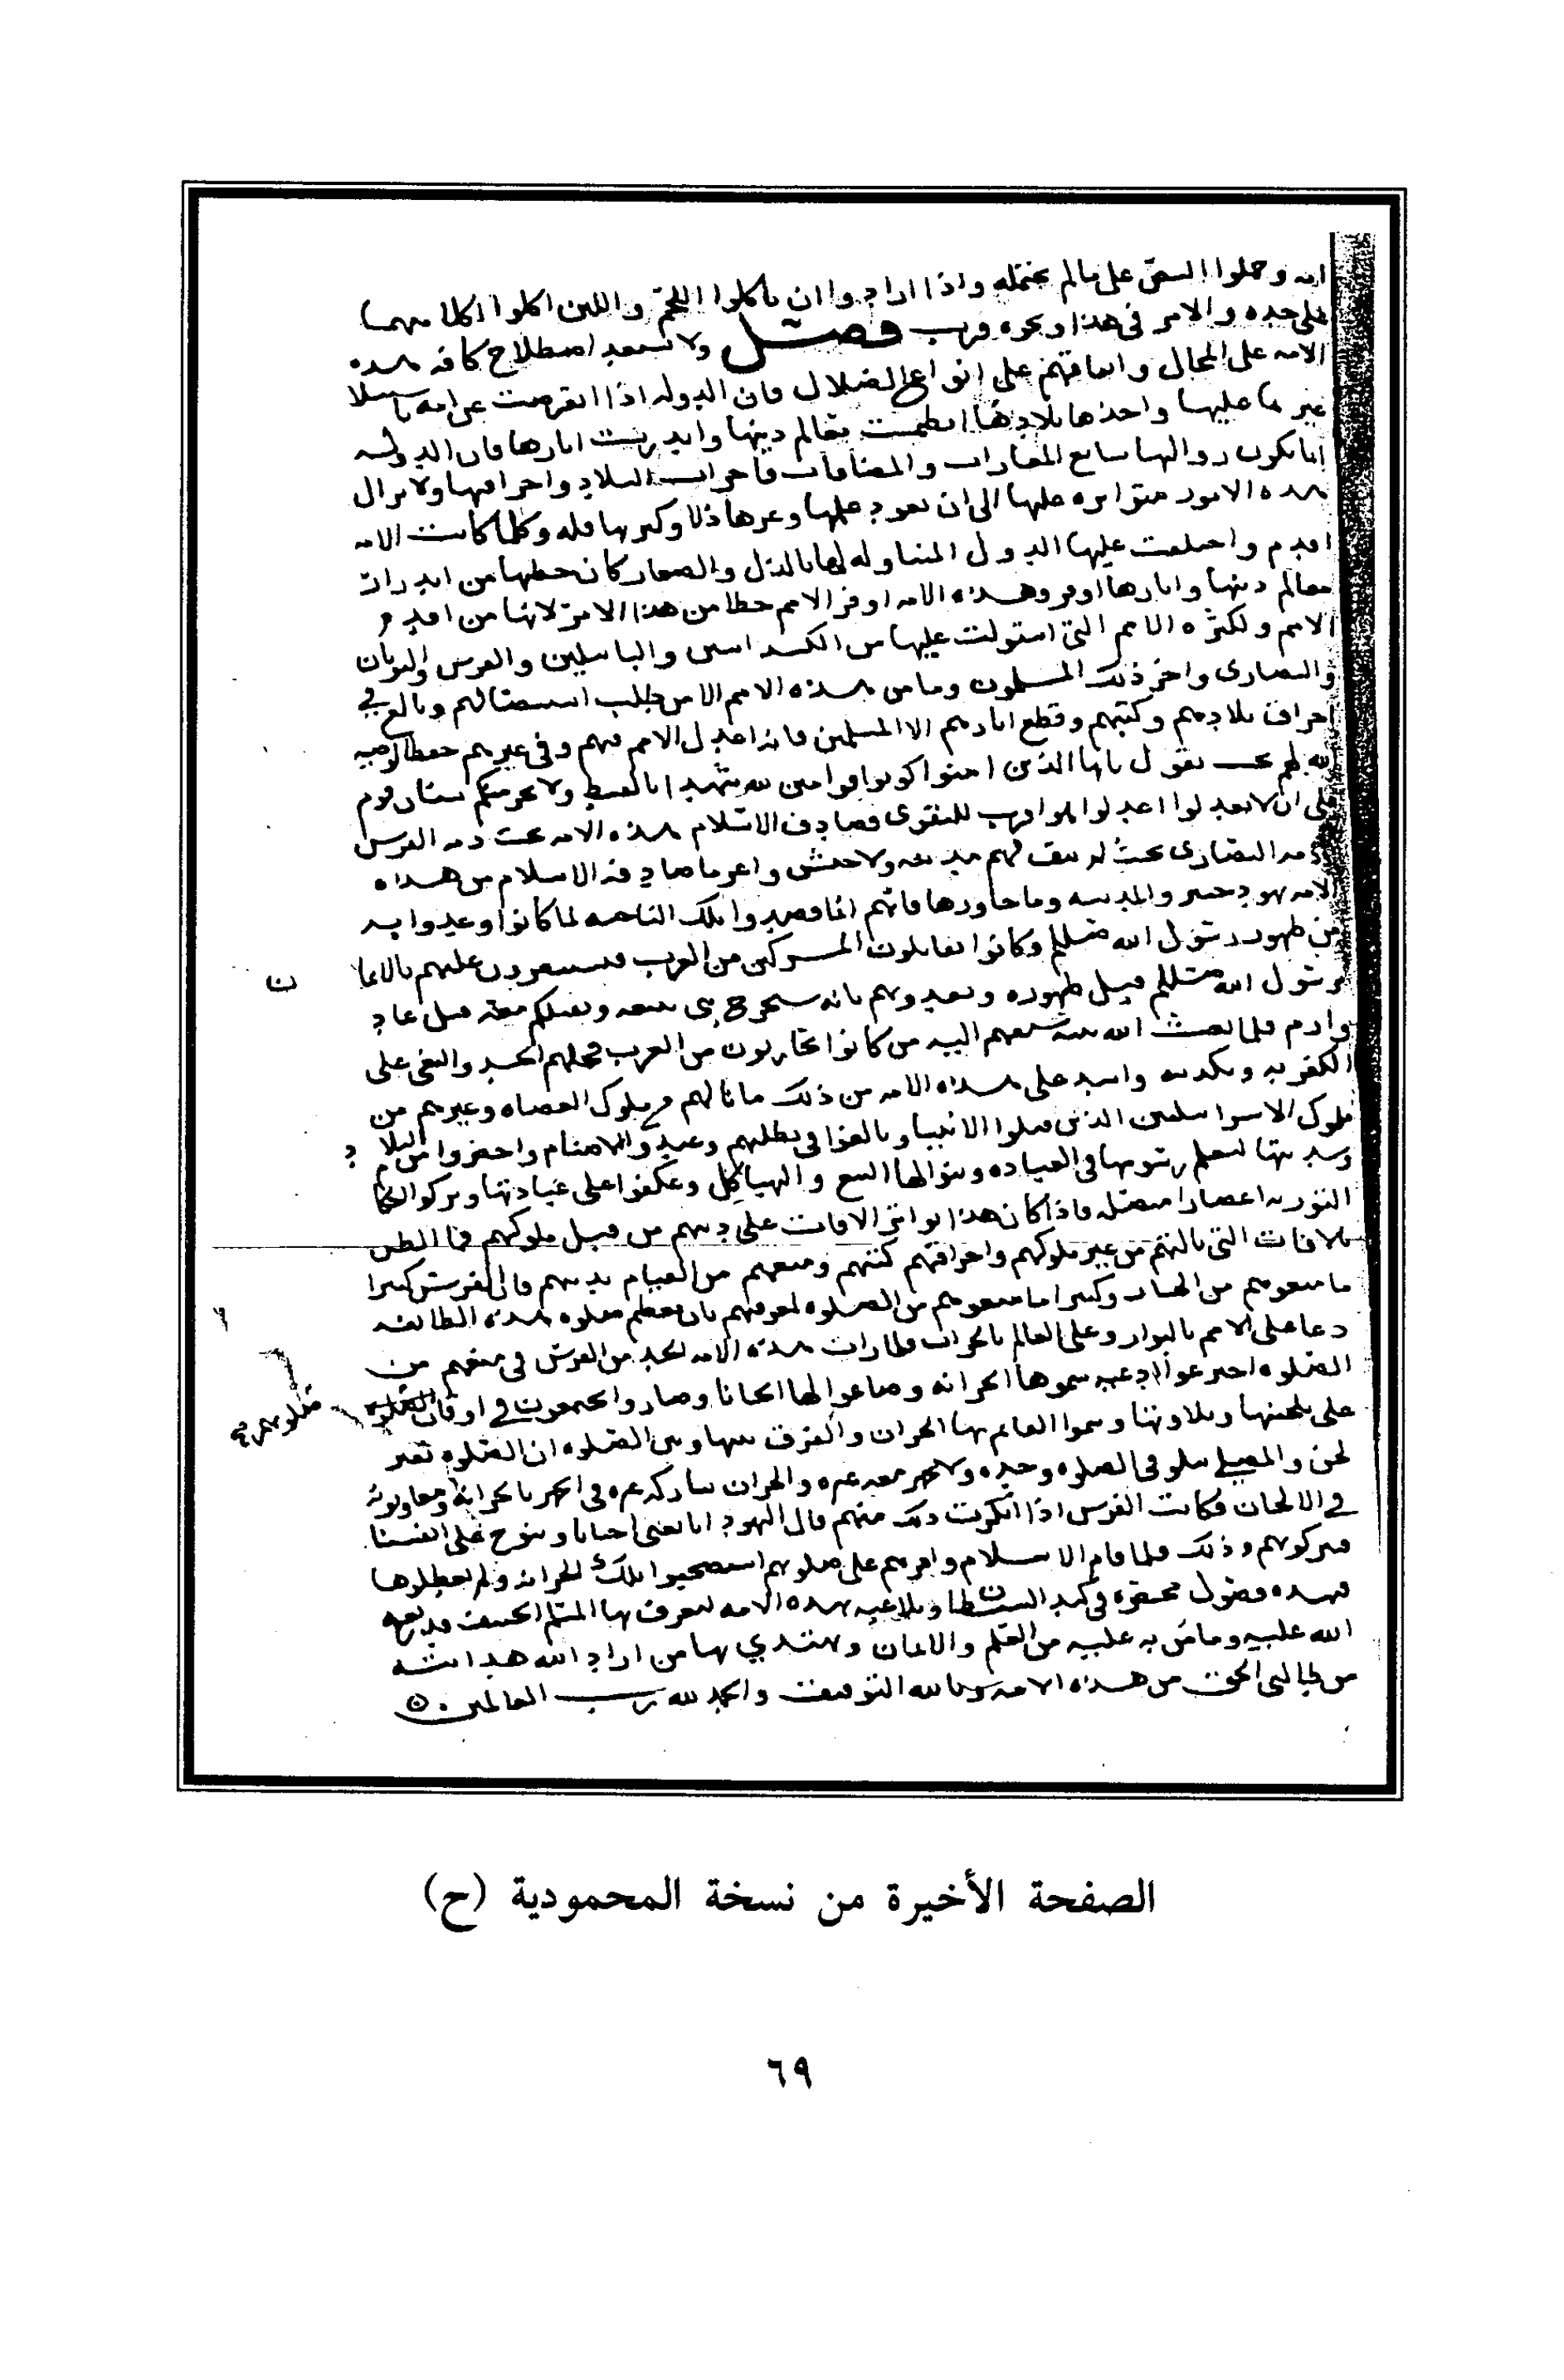 انه وحملوا النص على ما لم يحتمله واذا ارادوا ان ياكلوا اللحم واللبن اكلوا كلا منهما
على حده والامر فى هذا ونحوه قريب فصل ولا تستبعد اصطلاح كافه هذه
الامه على المحال واتفاقهم على انواع الضلال فان الدوله اذا انقرضت عن امه باستيلا
غيرها عليها واخذها بلادها انطمست معالم دينها واندرست اثارها فان الدوله
انما يكون زوالها بتتابع الغارات والمصافات واخراب البلاد واحراقها ولا تزال
هذه الامور متواتره عليها الى ان يعود علمها وعزها ذلا وكثرتها قله وكلما كانت الامه
اقدم واختلفت عليها الدول المتناوله لها بالذل والصغار كان حظها من اندراس
معالم دينها واثارها اوفر وهذه الامه اوفر الامم حظا من هذا الامر لانها من اقدم
الامم ولكثره الامم التى استولت عليها من الكسدانيين والبابليين والفرس واليونان
والنصارى واخر ذلك المسلمون وما من هذه الامم الا من طلب استئصالهم وبالغ فى
احراق بلادهم وكتبهم وقطع اثارهم الا المسلمين فانها اعدل الامم فيهم وفى غيرهم حفظا لوصيه
الله لهم حيث يقول يا ايها الذين امنوا كونوا قوامين لله شهدا بالقسط ولا يجرمنكم شنان قوم
على ان لا تعدلوا اعدلوا هو اقرب للتقوى فصادف الاسلام هذه الامه تحت ذمه الفرس
وذمه النصارى بحيث لم يبق لهم مدينه ولا جيش واعز ما صادفه الاسلام من هذه
الامه يهود خيبر والمدينه وما جاورها فانهم انما قصدوا تلك الناحيه لما كانوا وعدوا به
من ظهور رسول الله صلى وكانوا يقاتلون المشركين من العرب فيستنصرون عليهم بالايمان
برسول الله صلى قبل ظهوره ويعدونهم بانه سيخرج نبى نتبعه ونقتلكم معه قتل عاد
وارم فلما بعث الله نبيه سبقهم اليه من كانوا يحاربون من العرب فحملهم الحسد والبغى على
الكفر به وتكذيبه واشد على هذه الامه من ذلك ما نالهم من ملوك العصاه وغيرهم من
ملوك الاسرائيليين الذين قتلوا الانبيا وبالغوا فى تطلبهم وعبدوا الاصنام واحضروا من البلاد
وسدنتها لتعلم رسومها فى العباده وبنوا لها البيع والهياكل وعكفوا على عبادتها وتركوا احكام
التوريه اعصارا متصله فاذا كان هذا تواتر الافات على دينهم من قبل ملوكهم فما الظن
بالافات التى نالتهم من غير ملوكهم واحراقهم كتبهم ومنعهم من القيام بدينهم فان الفرس كثيرا
ما منعوهم من الختان وكثيرا ما منعوهم من الصلوه لمعرفتهم بان معظم صلوه هذه الطائفه
دعا على الامم بالبوار وعلى العالم بالخراب فلما رات هذه الامه الجد من الفرس فى منعهم من
الصلوه اخترعوا ادعيه سموها الحزانه وصاغوا لها الحانا وصاروا يجتمعون فى اوقات
صلوتهم
على تلحينها وتلاوتها وسموا القائم بها الحزان والفرق بينها وبين الصلوه ان الصلوه بغير
لحن والمصلى يتلو فى الصلوه وحده ولا يجهر معه غيره والحزان يشاركه غيره فى الجهر بالحزانه ومعاونته
فى الالحان فكانت الفرس اذا انكرت ذلك منهم قال اليهود انا نغنى احيانا وننوح على انفسنا
فتركوهم وذلك فلما قام الاسلام واقرهم على صلوتهم استصحبوا تلك الحزانه ولم يعطلوها
فهذه فصول مختصره فى كيد الشيطان وتلاعبه بهذه الامه ليعرف بها المسلم الحنيف قدر نعمه
الله عليه وما من به عليه من العلم والايمان ويهتدي بها من اراد الله هدايته
من طالبى الحق من هذه الامه وبالله التوفيق والحمد لله رب العالمين
الصفحة الأخيرة من نسخة المحمودية (ح)
٦٩